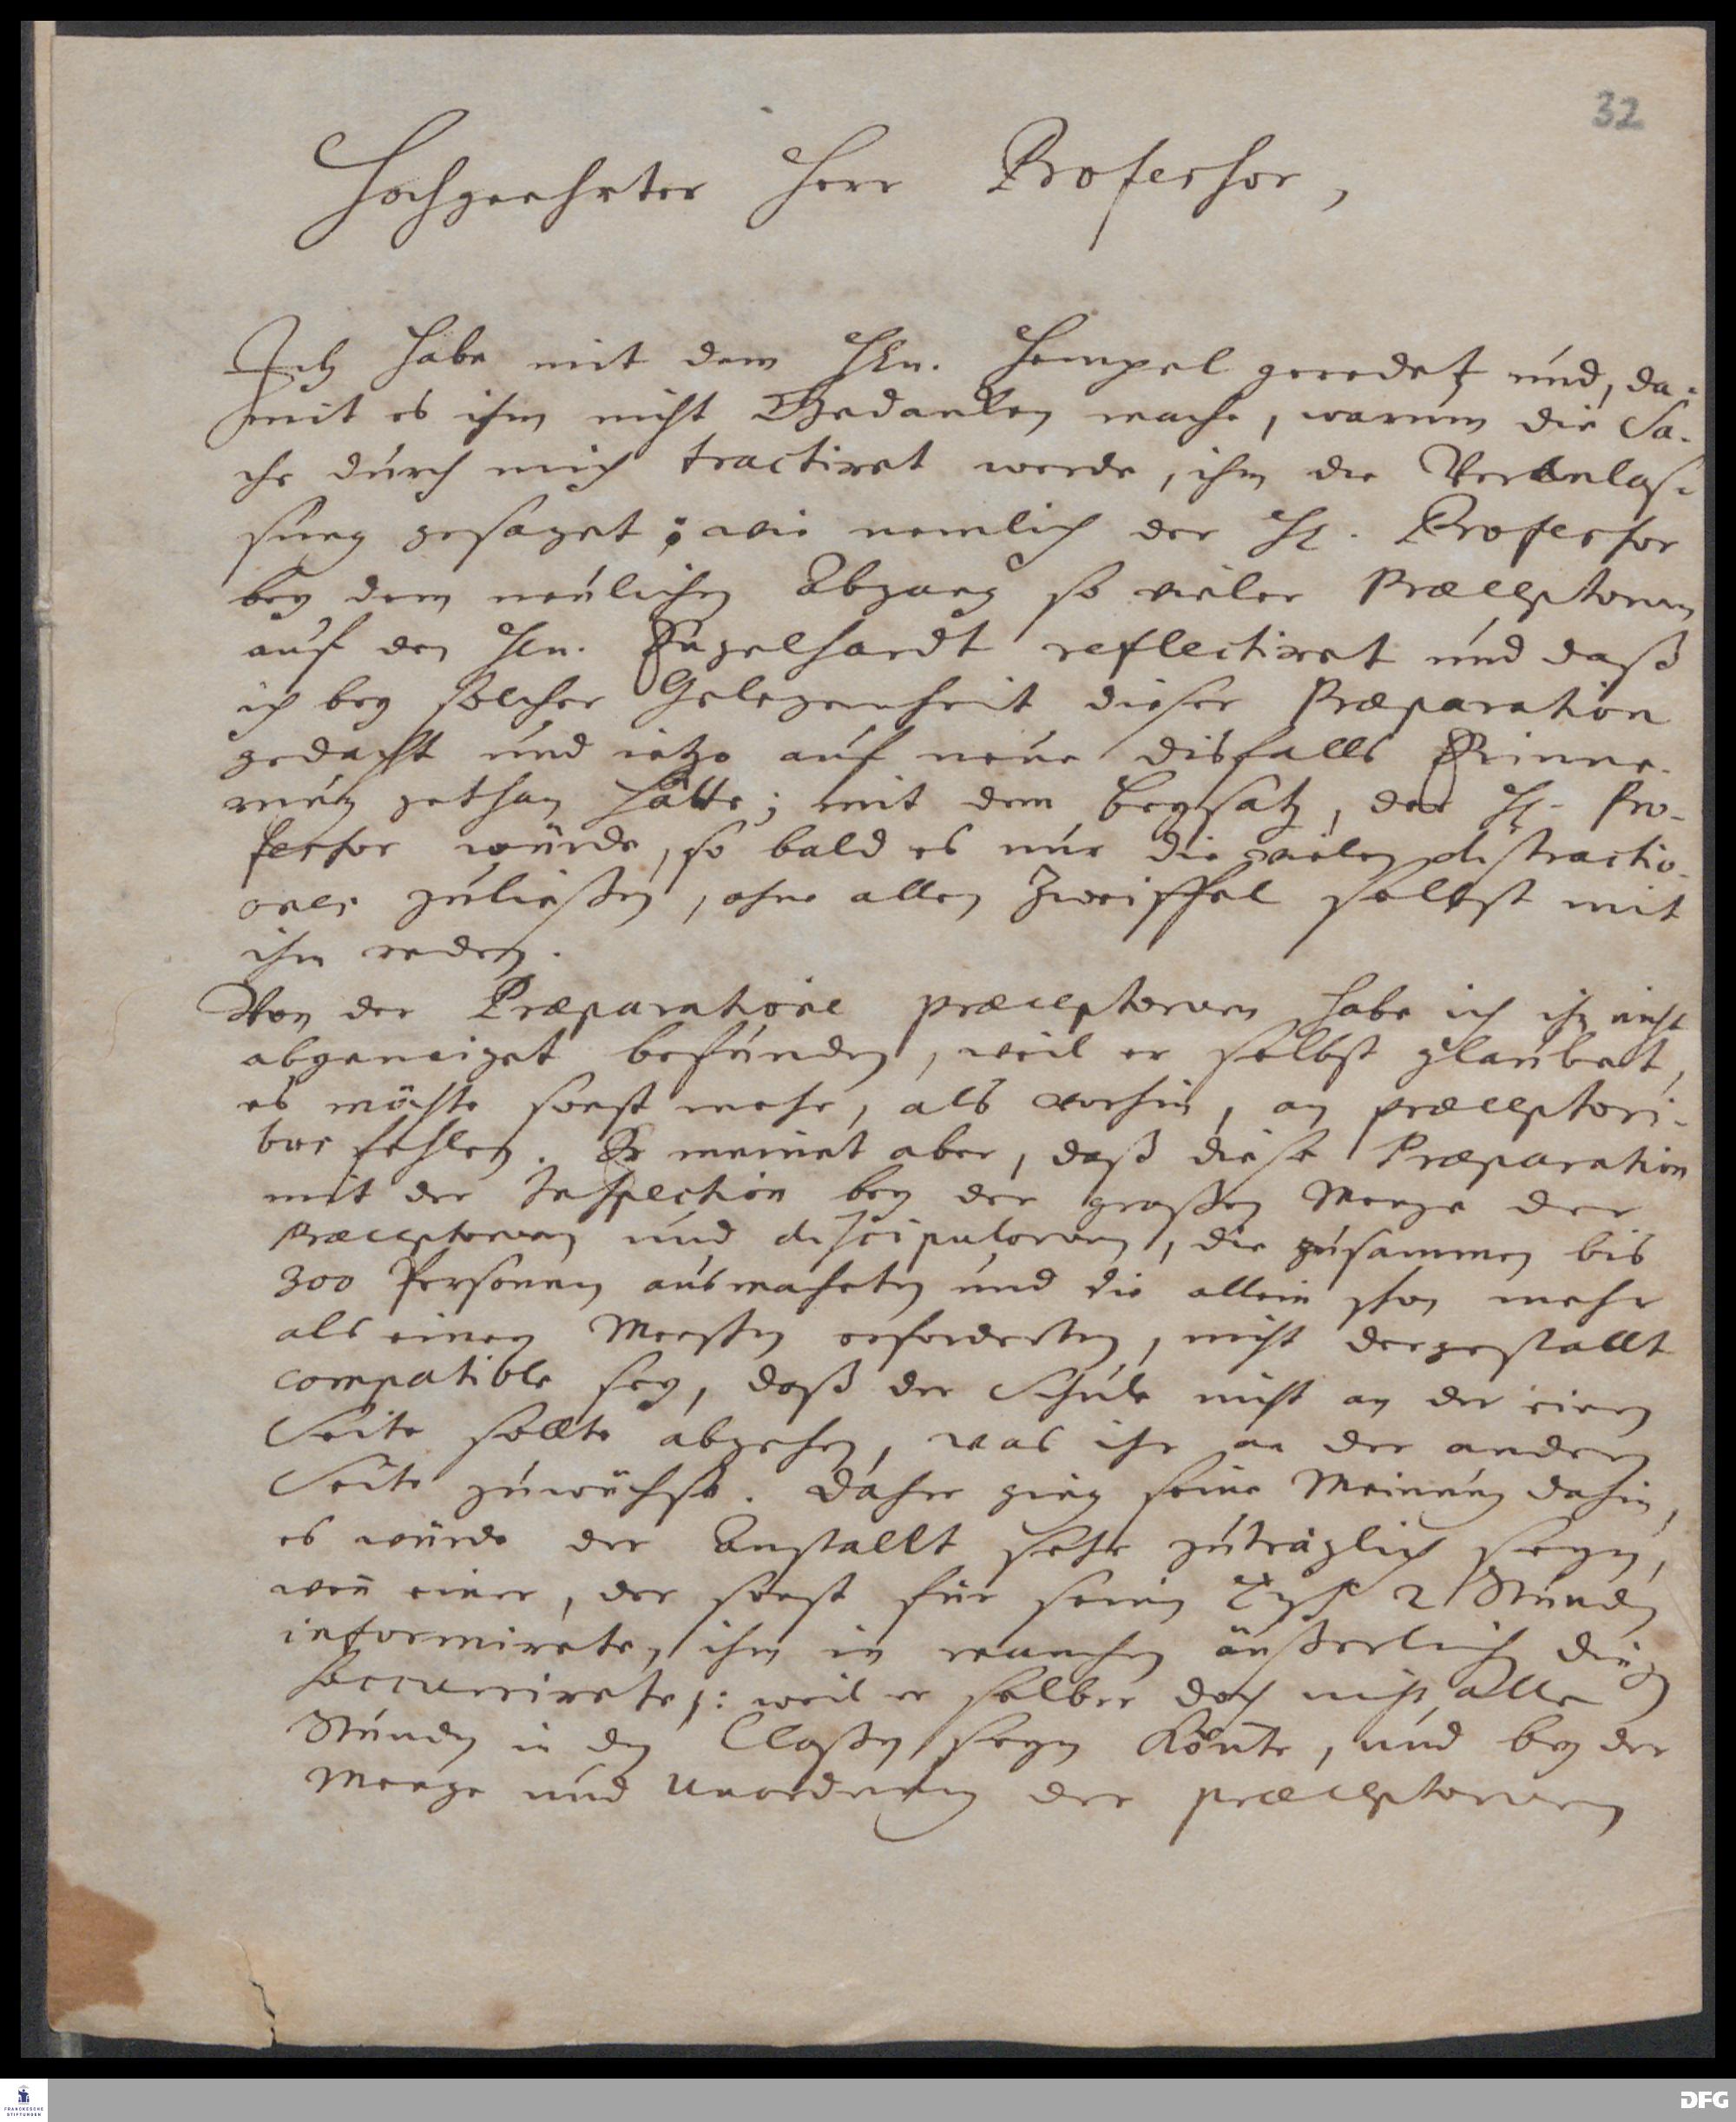 32
Hochgeehrter Herr Professor,
Ich habe mit dem HEn. Hempel geredet und, da-
mit es ihm nicht Gedancken mache, warum die Sa-
che durch mich tractiret werde, ihm die Veranlas-
sung gesaget; wie nemlich der H. Professor
bey dem neulichen Abgang so vieler Præceptorum
auf den HEn. Engelhardt reflectiret und daß
ich bey solcher Gelegenheit dieser Præparation
gedacht und ietzo auf neue disfalls Erinne-
rung gethan hätte; mit dem beysatz, der H. Pro-
fessor würde, so bald es nur die vielen distractio-
ones zuließen, ohne allen Zweiffel selbst mit
ihm reden.
Von der Præparatione præceptorum habe ich ihn nicht
abgeneiget befunden, weil er selbst glaubet,
es möchte sonst mehr, als vorhin, an præceptori-
bus fehlen. Er meinet aber, daß diese Præparation
mit der Inspection bey der großen Menge der
Præceptorum und discipulorum, die zusammen bis
300 Personen ausmacheten und die allein schon mehr
als einen Menschen erforderten, nicht dergestallt
compatible sey, daß der Schule nicht an der einen
Seite sollte abgehen, was ihr an der andern
Seite zuwüchse. Daher ging seine Meinung dahin,
es würde der Anstallt sehr zuträglich seyn,
wenn einer, der sonst für seinen Tisch 2 Stunden
informirete, ihm in manchen äußerlichen Dingen
succurrirete,: weil er selber doch nicht alle
Stunden in den Classen seyn könte, und bey der
Menge und Unordnung der præceptorum
FRANCKESCHE
STIFTUNGEN
DFG